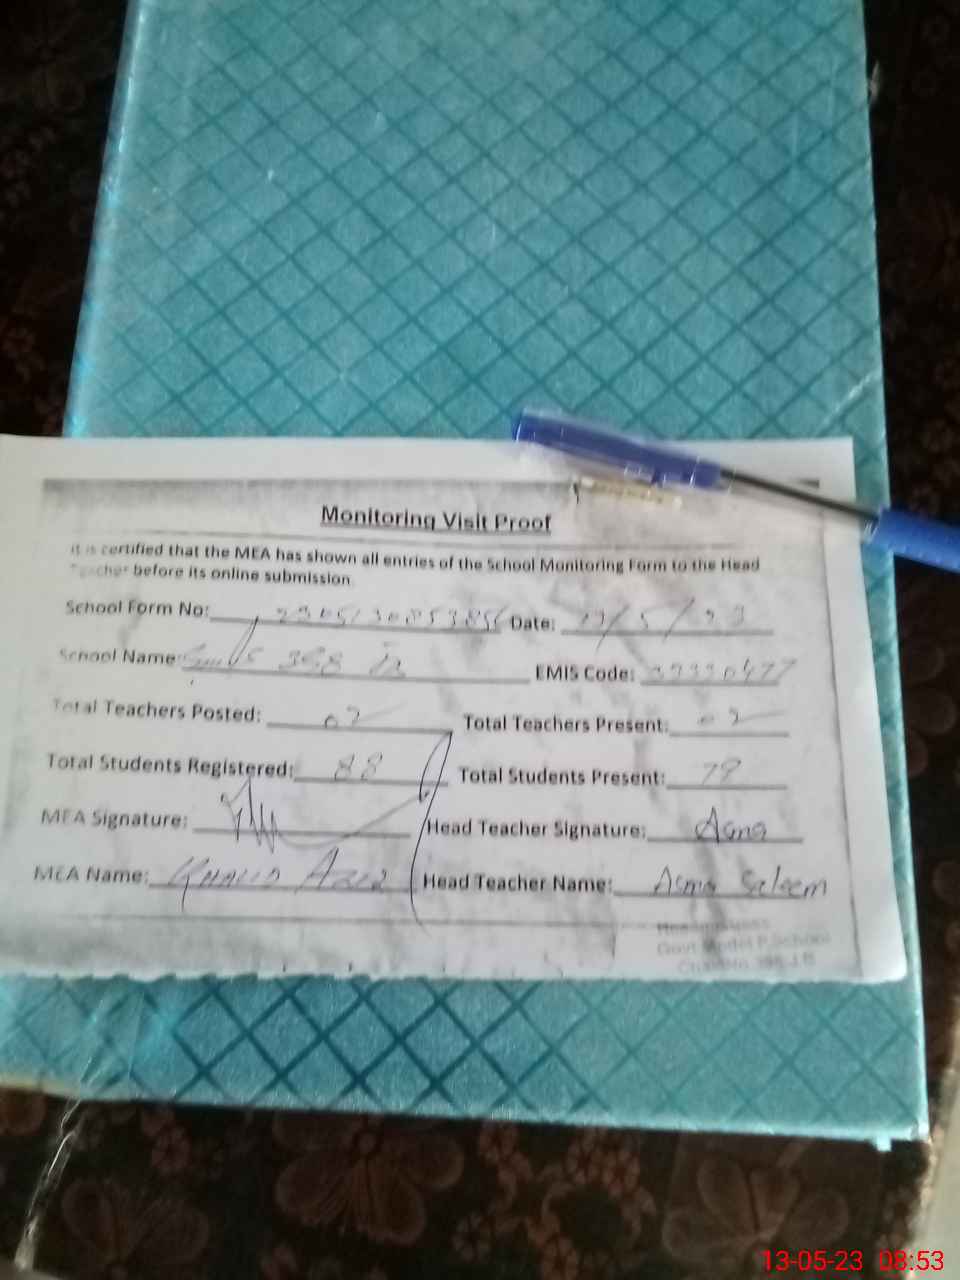 Monitoring Visit Proof
It is certified that the MEA has shown all entries of the School Monitoring Form to the Head
Teacher before its online submission
School Form No: Date: 13/5/23
School Name: 398 EMIS Code:
Total Teachers Posted: 02 Total Teachers Present: 02
Total Students Registered: 88 Total Students Present: 79
MEA Signature: Head Teacher Signature: Asma
MEA Name: Khalid Aziz Head Teacher Name: Asma Saleem
Govt Model P. School
13-05-23 08:53